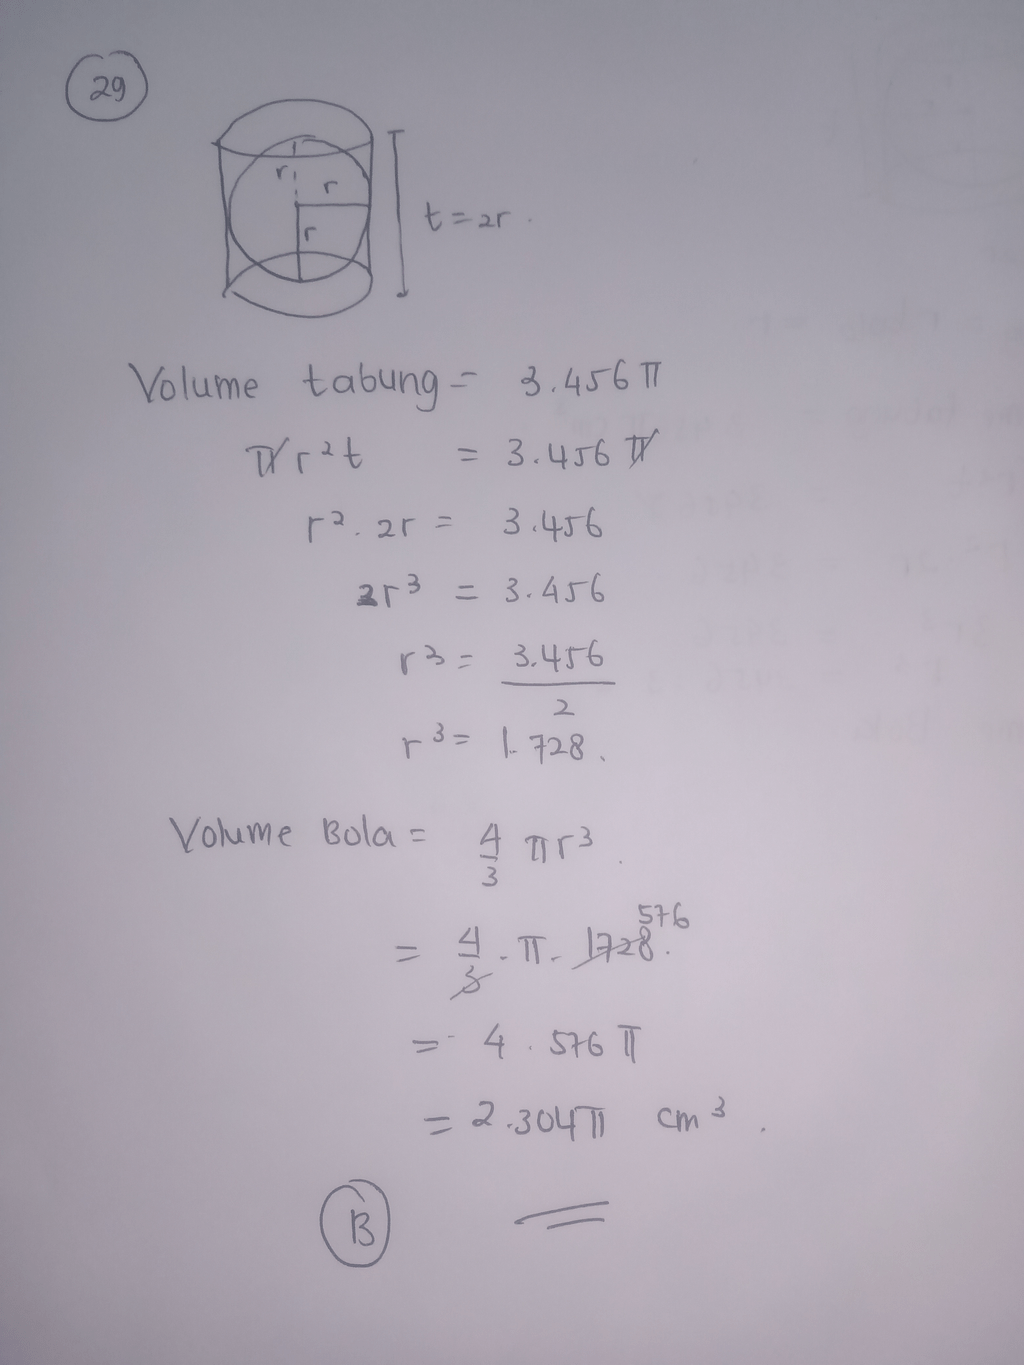 29
r r
r
t = 2r.
Volume tabung = 3.456 π
πr²t = 3.456 π
r². 2r = 3.456
2r³ = 3.456
r³ = 3.456
2
r³ = 1.728.
Volume Bola = 4/3 πr³.
576
= 4/3 . π . 1728.
= 4 . 576 π
= 2.304π cm³.
B